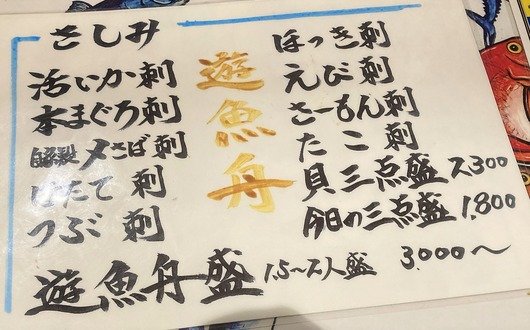 さしみ
活いか刺
本まぐろ刺
自家製〆さば刺
ほたて刺
つぶ刺
遊魚舟
ほっき刺
えび刺
さーもん刺
たこ刺
貝三点盛 2,300
今日の三点盛 1,800
遊魚舟盛 1.5〜2人盛 3,000〜